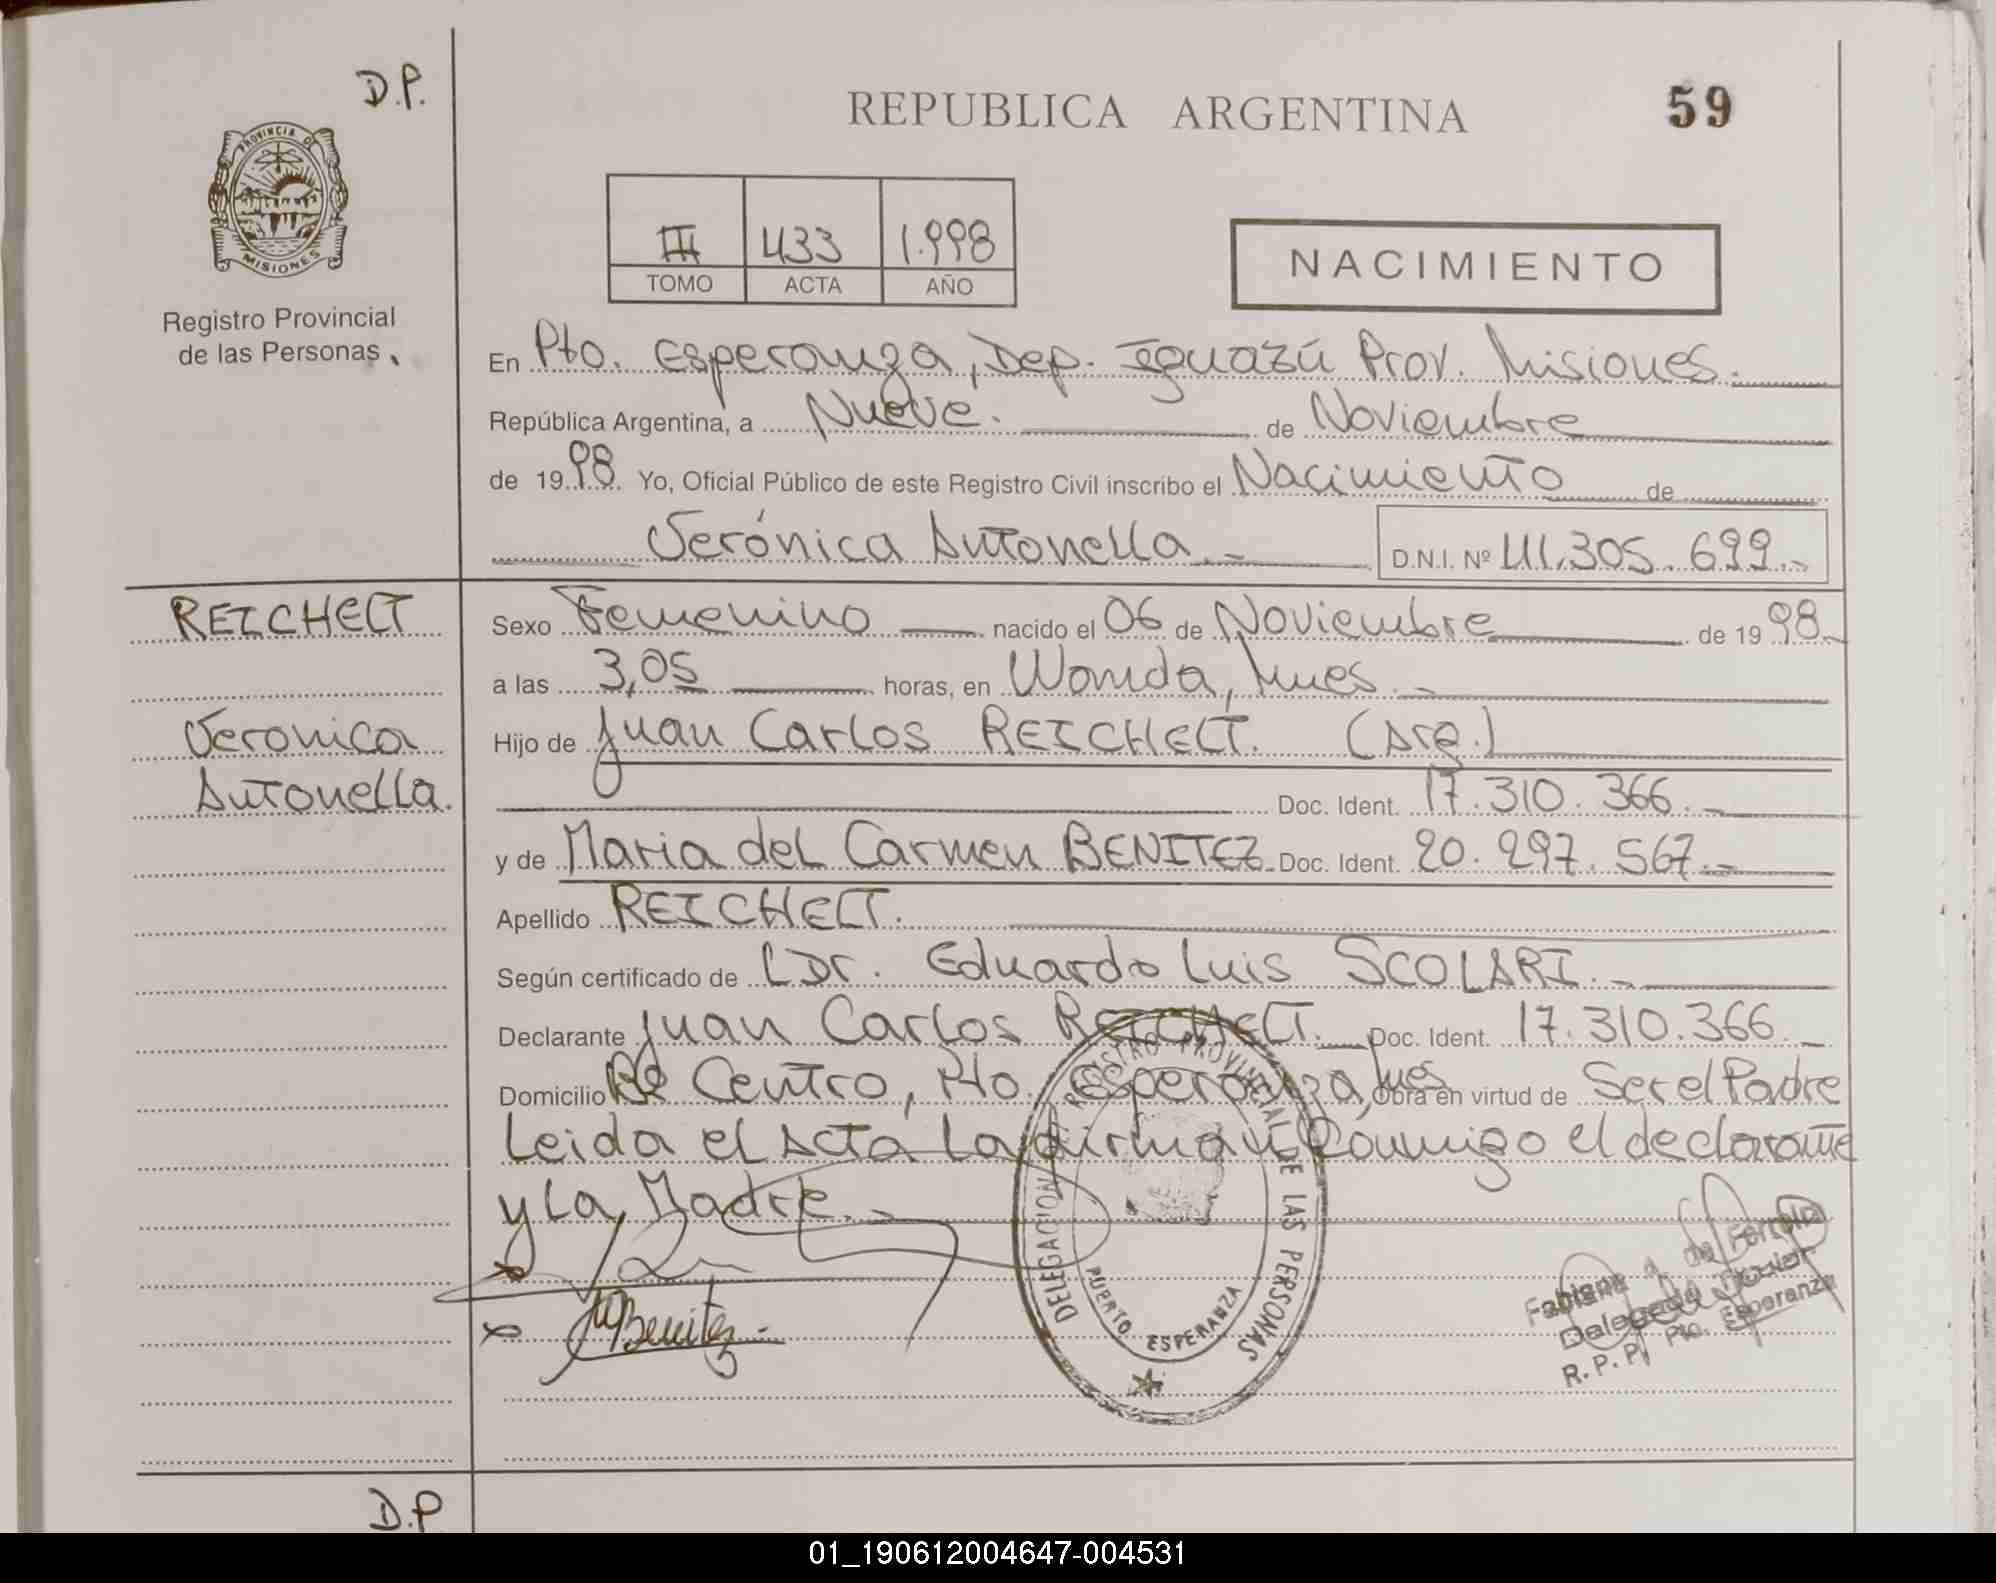 D.P.
REPUBLICA ARGENTINA
59
PROVINCIA DE
MISIONES
Registro Provincial
de las Personas
III 433 1.998
TOMO ACTA AÑO
NACIMIENTO
En Pto. Esperanza, Dep. Iguazú Prov. Misiones.
República Argentina, a Nueve. de Noviembre
de 1998. Yo, Oficial Público de este Registro Civil inscribo el Nacimiento de
Verónica Antonella.- D.N.I. Nº 41.305.699.-
REICHELT
Veronica
Antonella.
Sexo Femenino nacido el 06 de Noviembre de 1998.
a las 3,05 horas, en Wanda, Mnes.-
Hijo de Juan Carlos REICHELT. (Arg.)
Doc. Ident. 17.310.366.-
y de Maria del Carmen BENITEZ. Doc. Ident. 20.297.567.-
Apellido REICHELT.
Según certificado de Dr. Eduardo Luis SCOLARI.-
Declarante Juan Carlos REICHELT. Doc. Ident. 17.310.366.-
Domicilio Bº Centro, Pto. Esperanza, Mnes Obra en virtud de Ser el Padre
Leida el Acta La firman Conmigo el declarante
y La Madre.-
MBenitez.-
DELEGACION REGISTRO PROVINCIAL DE LAS PERSONAS
PUERTO ESPERANZA
Fabiana de Ferreira
Delegada Titular
R.P.P. Pto. Esperanza
D.P
01_190612004647-004531